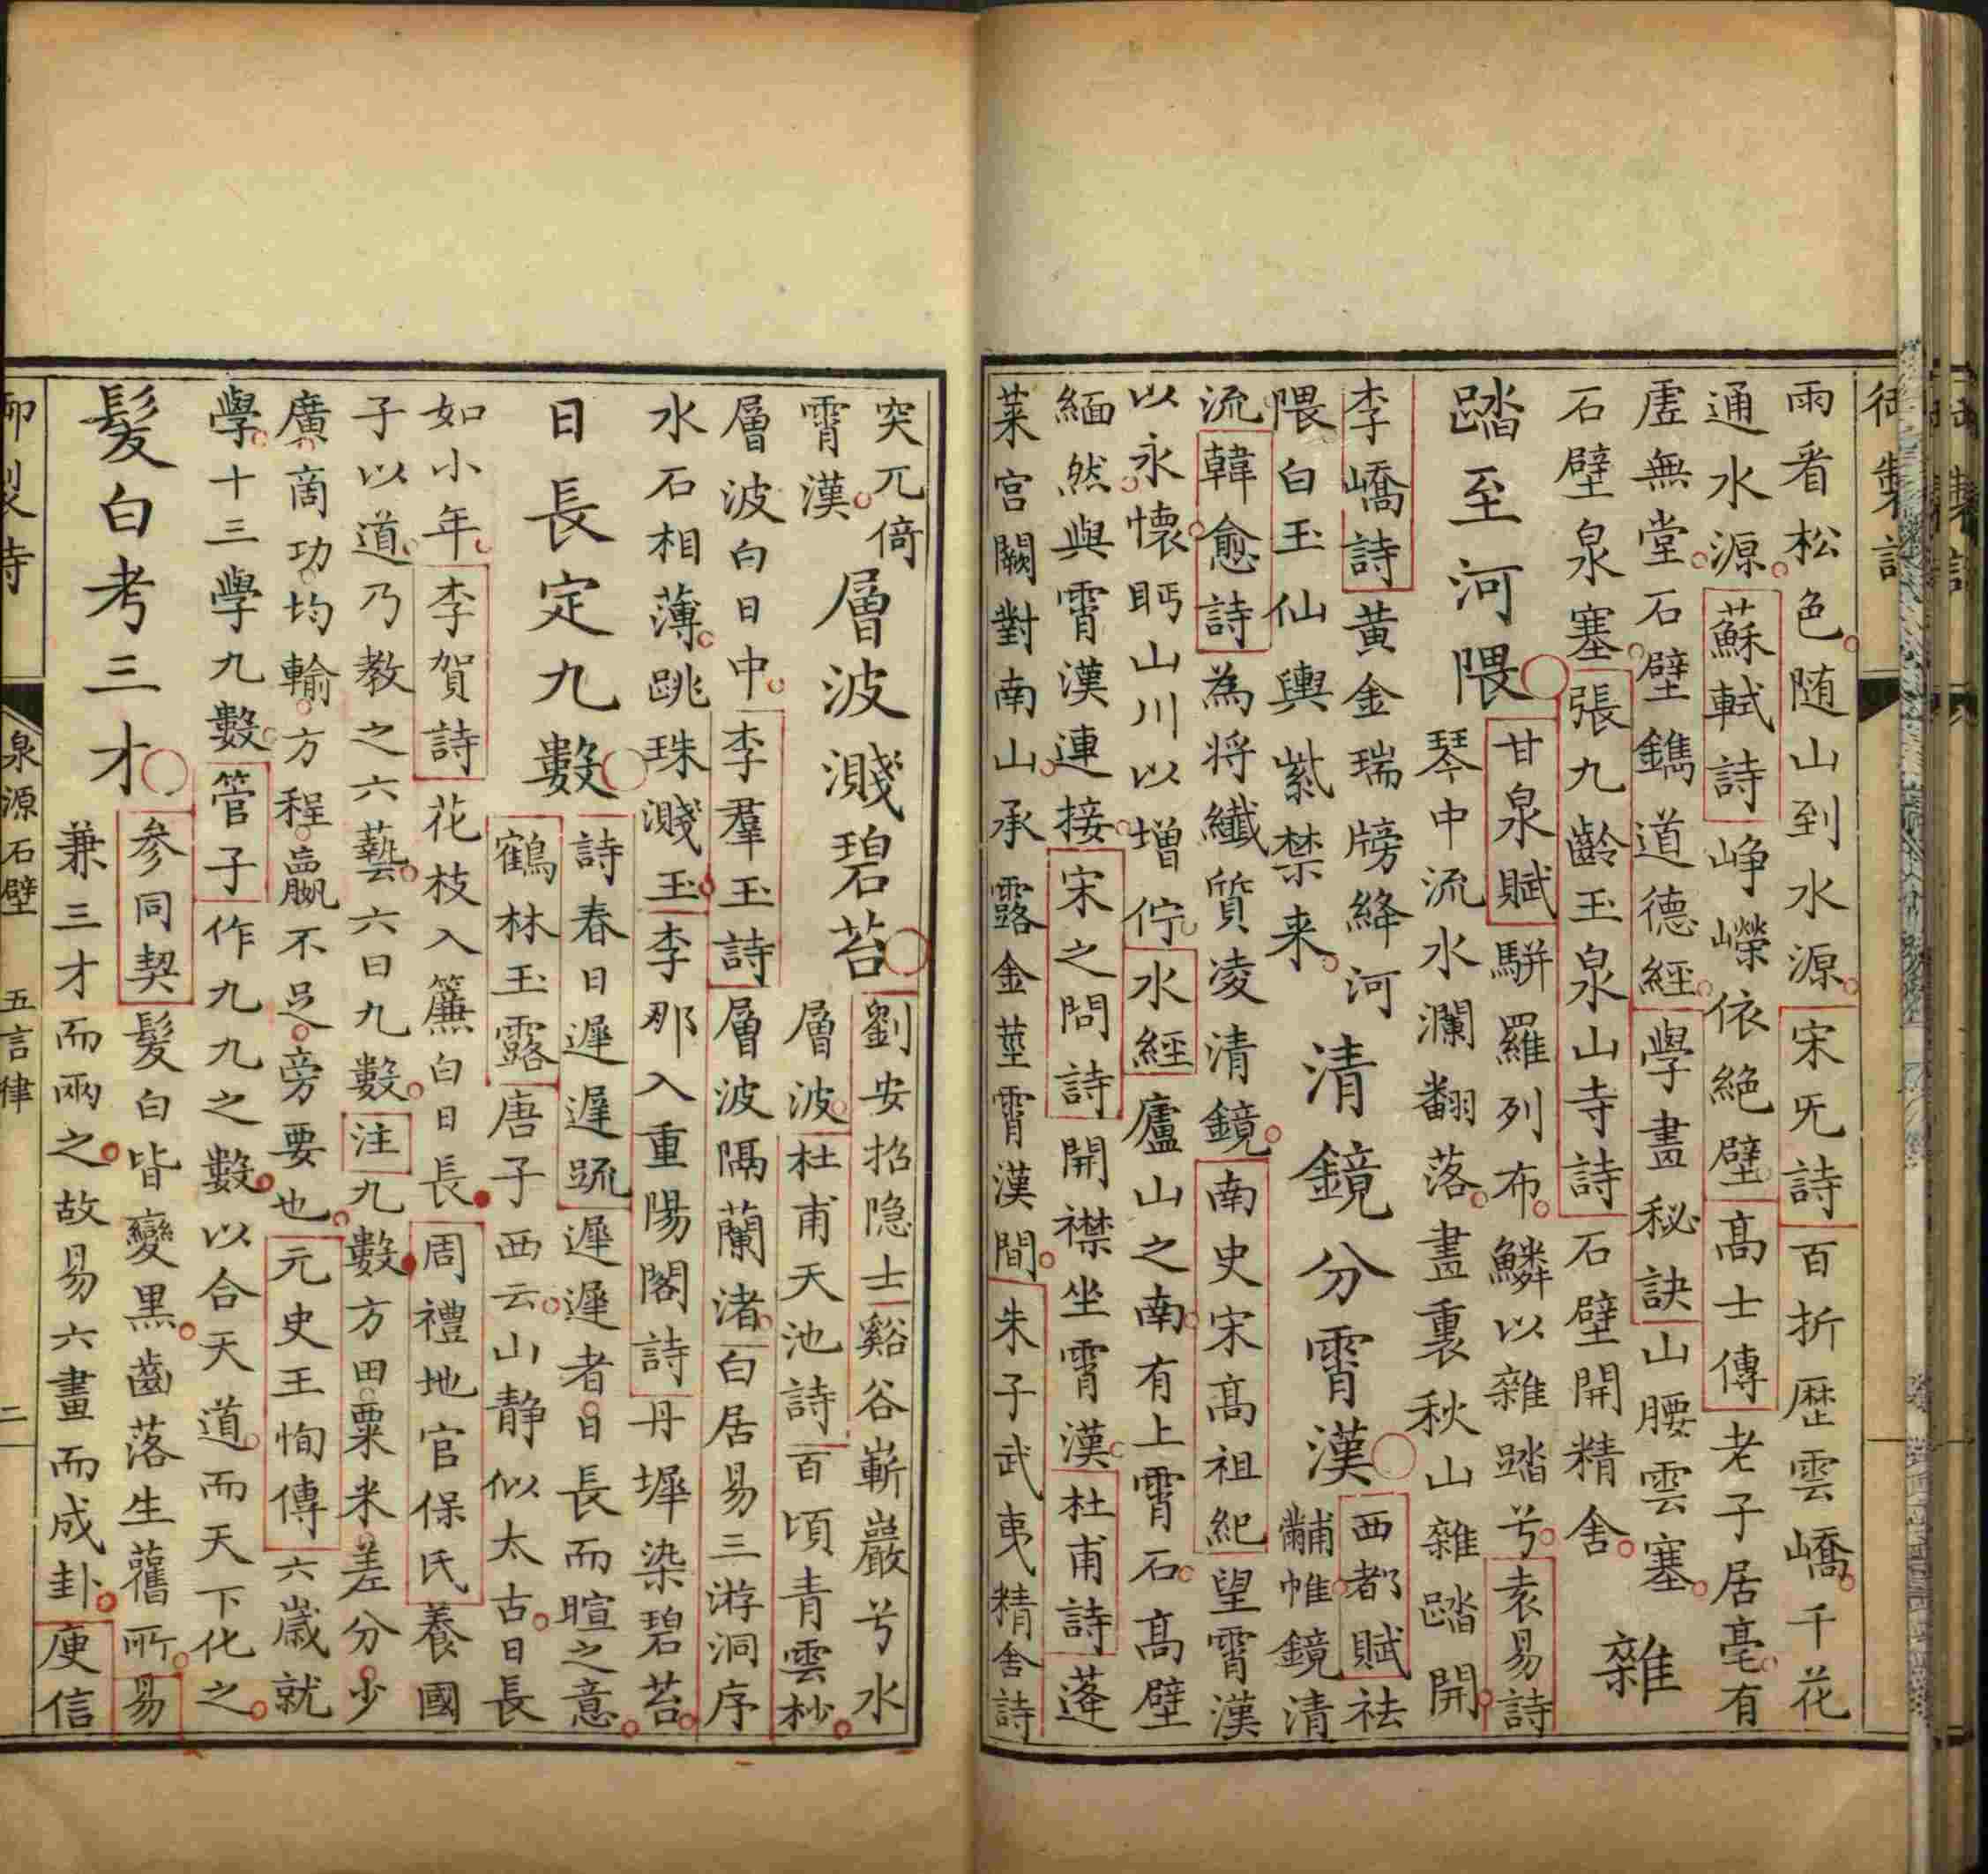 御製詩
雨看松色随山到水源宋旡詩百折歴雲嶠千花
通水源蘇軾詩峥嶸依絶壁髙士傳老子居亳有
虗無堂石壁鐫道德經學畵秘訣山腰雲塞雜
石壁泉塞張九齡玉泉山寺詩石壁開精舍
踏至河隈甘泉賦駢羅列布鱗以雜踏兮袁易詩
琴中流水瀾翻落畵裏秋山雜踏開
李嶠詩黄金瑞牓絳河清鏡分霄漢西都賦袪
隈白玉仙輿紫禁来黼帷鏡清
流韓愈詩為将纖質凌清鏡南史宋髙祖紀望霄漢
以永懷眄山川以增佇水經廬山之南有上霄石髙壁
緬然與霄漢連接宋之問詩開襟坐霄漢杜甫詩蓬
莱宫闕對南山承露金莖霄漢間朱子武夷精舍詩
突兀倚層波濺碧苔劉安招隐士谿谷嶄巖兮水
霄漢層波杜甫天池詩百頃青雲杪
層波白日中李羣玉詩層波隔蘭渚白居易三游洞序
水石相薄跳珠濺玉李那入重陽閣詩丹墀染碧苔
日長定九數詩春日遲遲疏遲遲者日長而暄之意
鶴林玉露唐子西云山静似太古日長
如小年李賀詩花枝入簾白日長周禮地官保氏養國
子以道乃教之六藝六曰九數注九數方田粟米差分少
廣商功均輸方程嬴不足旁要也元史王恂傳六歲就
學十三學九數管子作九九之數以合天道而天下化之
髪白考三才參同契髪白皆變黒齒落生舊所易
兼三才而兩之故易六畫而成卦庾信
御製詩
泉源石壁
五言律
二